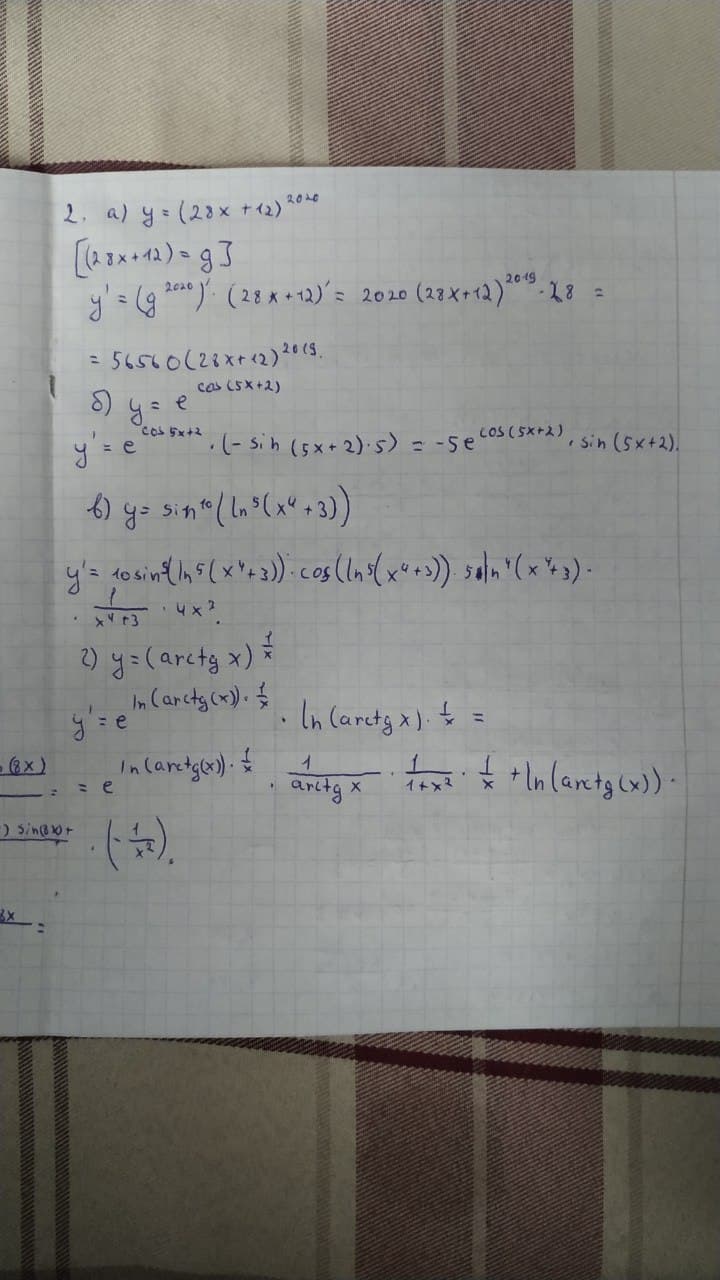 2. а) y = (28x + 12)^2020
[(28x + 12) = g]
y' = (g^2020)' · (28x + 12)' = 2020 (28x + 12)^2019 · 28 =
= 56560 (28x + 12)^2019.
б) y = e^cos(5x+2)
y' = e^cos 5x+2 · (- sin (5x + 2) · 5) = -5e^cos(5x+2) · sin (5x+2).
в) y = sin^10 (ln^5 (x^4 + 3))
y' = 10 sin^9 (ln^5 (x^4 + 3)) · cos (ln^5 (x^4 + 3)) · 5 ln^4 (x^4 + 3) ·
· 1/(x^4 + 3) · 4x^3.
г) y = (arctg x)^(1/x)
y' = e^(ln (arctg(x)) · 1/x) · ln (arctg x) · 1/x =
(8x)
= = e^(ln (arctg(x)) · 1/x) · 1/(arctg x) · 1/(1+x^2) · 1/x + ln (arctg (x)) ·
) sin(8x) + · (- 1/x^2).
8x =